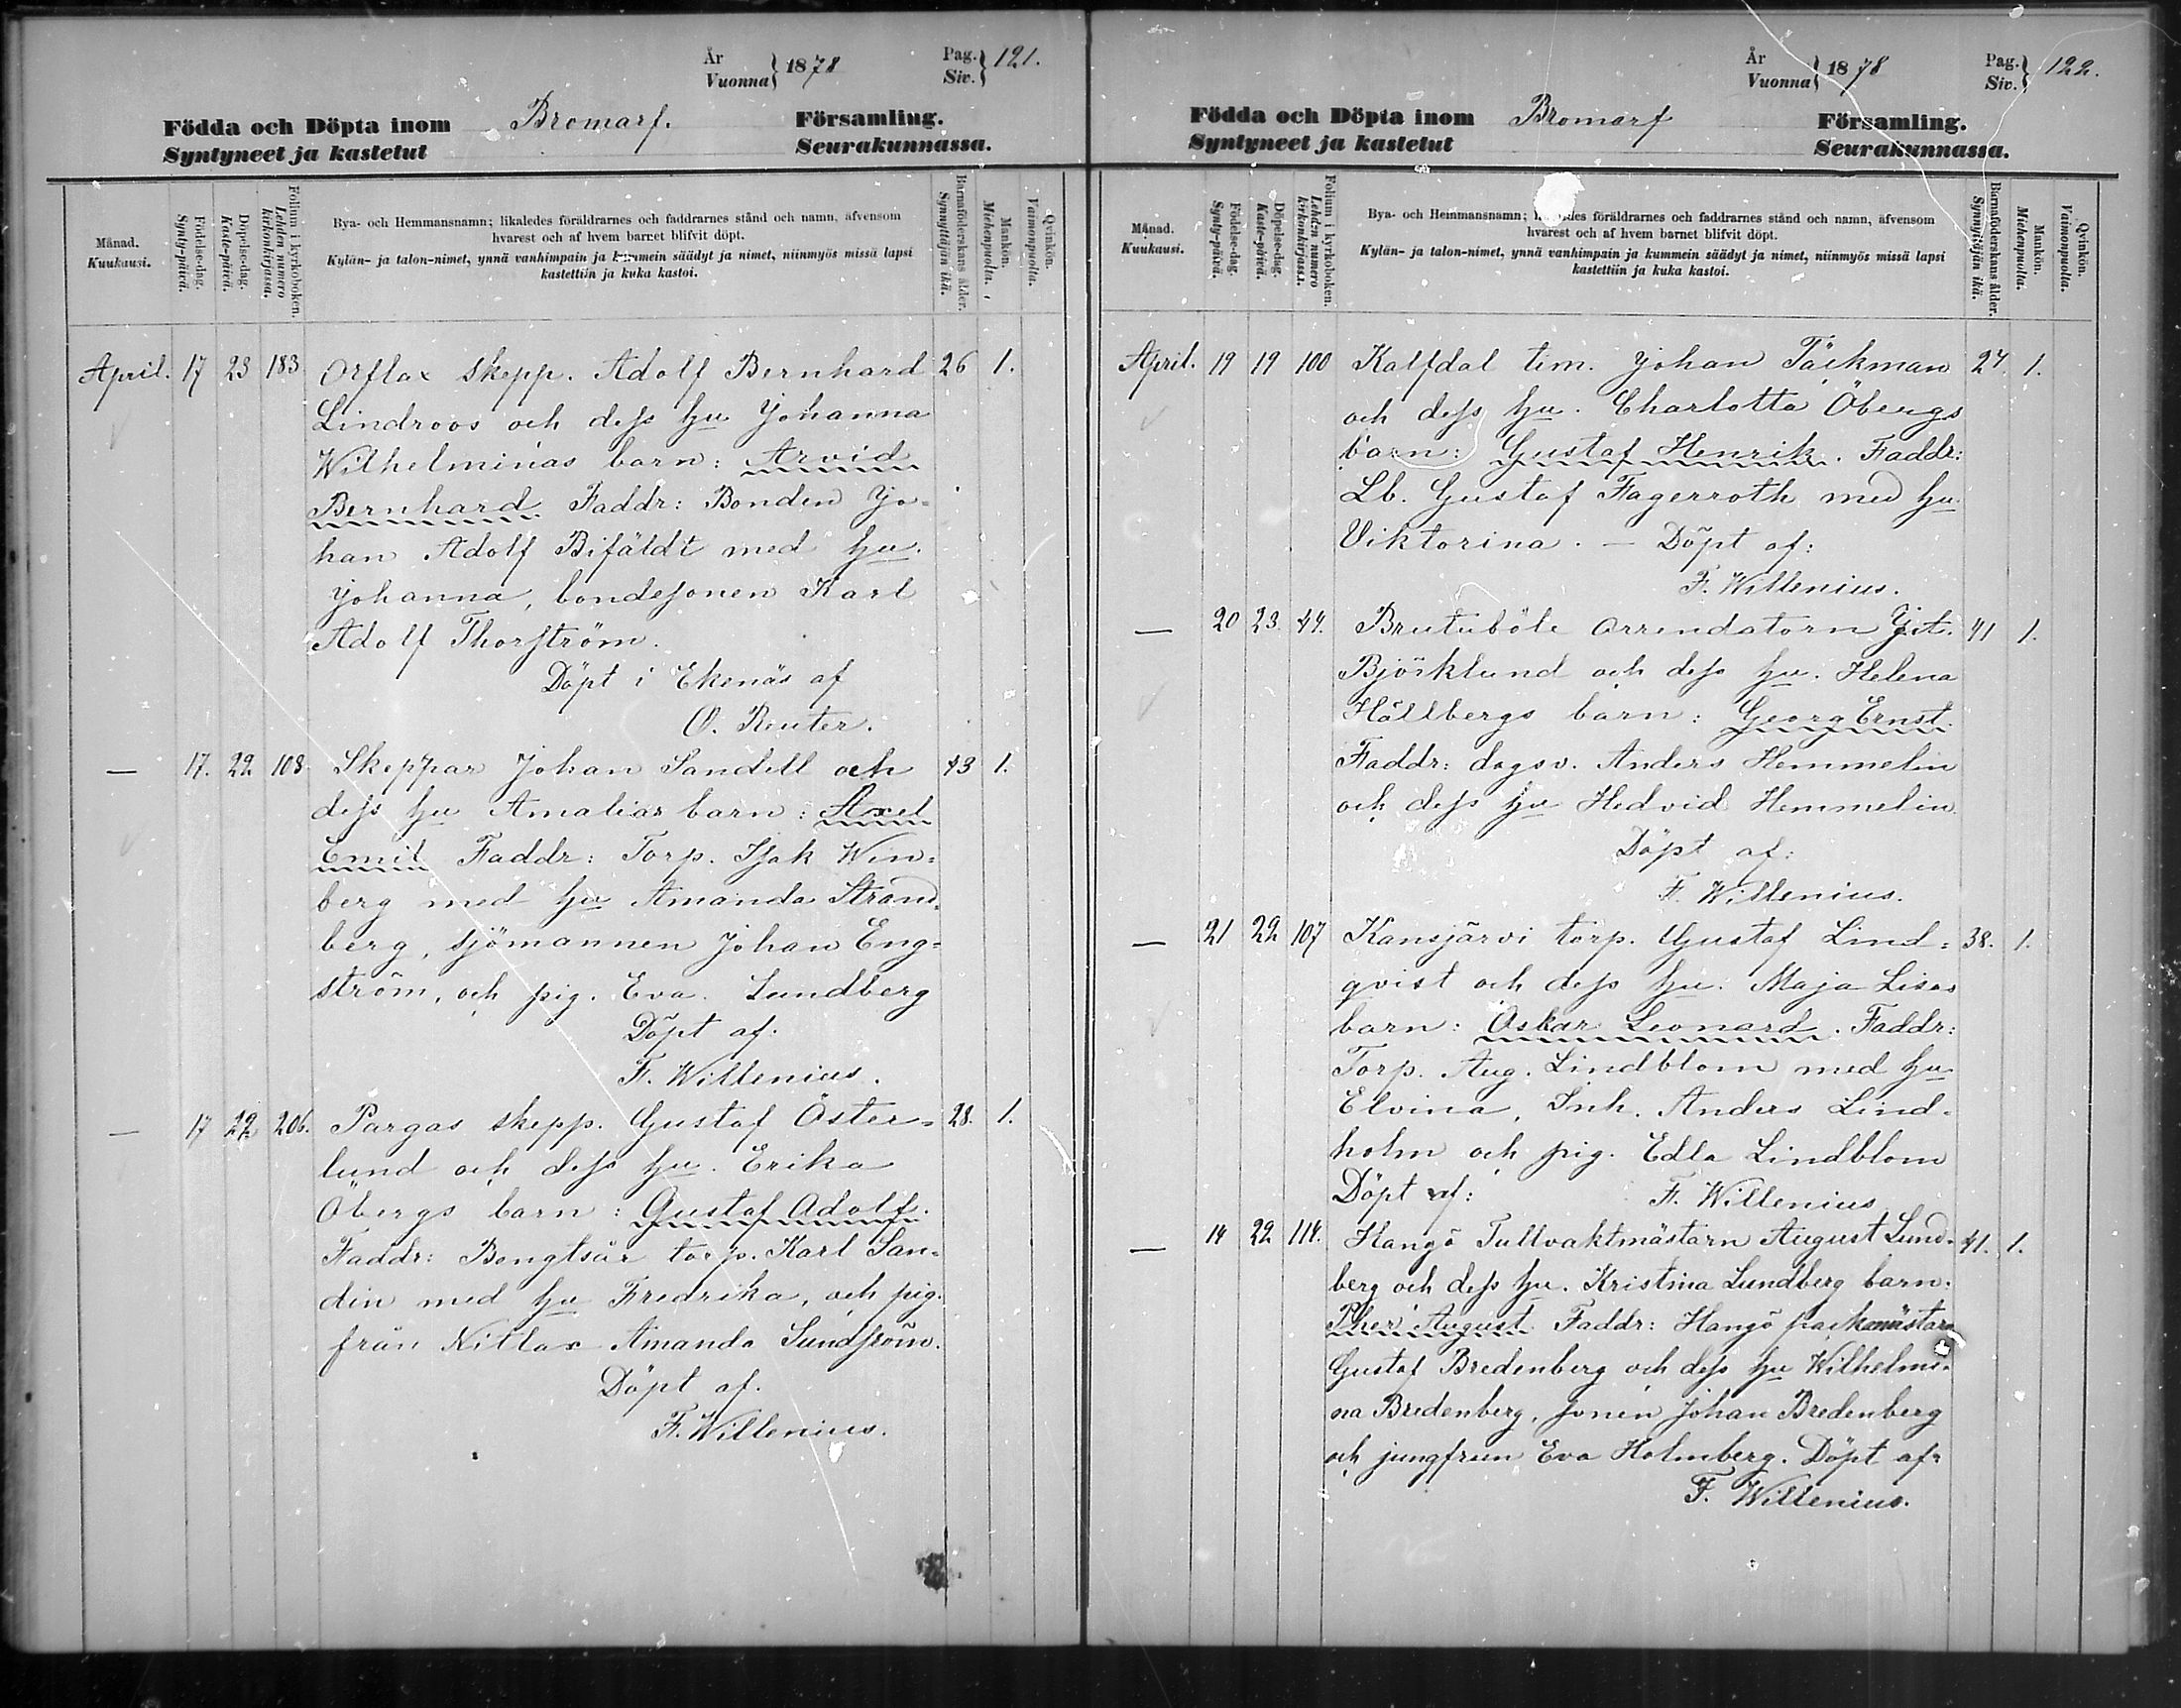 År
Vuonna } 1878
Pag.
Siv. } 121.
Födda och Döpta inom Bromarf. Församling.
Syntyneet ja kastetut Seurakunnassa.
Månad.
Kuukausi.
Födelse-dag.
Synty-päivä.
Döpelse-dag.
Kaste-päivä.
Folium i kyrkoboken.
Lehden numero
kirkonkirjassa.
Bya- och Hemmansnamn; likaledes föräldrarnes och faddrarnes stånd och namn, äfvensom
hvarest och af hvem barnet blifvit döpt.
Kylän- ja talon-nimet, ynnä vanhimpain ja kummein säädyt ja nimet, niinmyös missä lapsi
kastettiin ja kuka kastoi.
Barnaföderskans ålder.
Synnyttäjän ikä.
Mankön.
Miehenpuolta.
Qvinkön.
Vaimonpuolta.
April. 17 23 183 Orflax skepp. Adolf Bernhard 26 1.
Lindroos och dess hu Johanna
Wilhelminas barn: Arvid
Bernhard Faddr: Bonden Jo-
han Adolf Bifäldt med hu.
Johanna, bondesonen Karl
Adolf Thorström.
Döpt i Ekenäs af
O. Reuter.
— 17. 22 108. Skeppar Johan Sandell och 43 1.
dess hu Amalias barn: Axel
Emil Faddr: Torp. Isak Win-
berg med hu Amanda Strand-
berg, sjömannen Johan Eng-
ström, och pig. Eva Lundberg
Döpt af:
F. Willenius.
— 17 22 206. Pargas skepp. Gustaf Öster- 28. 1.
lund och dess hu. Erika
Öbergs barn: Gustaf Adolf.
Faddr: Bengtsår torp. Karl San-
din med hu Fredrika, och pig.
från Nitlax Amanda Sundström.
Döpt af.
F. Willenius.
År
Vuonna } 1878
Pag.
Siv. } 122.
Födda och Döpta inom Bromarf Församling.
Syntyneet ja kastetut Seurakunnassa.
Månad.
Kuukausi.
Födelse-dag.
Synty-päivä.
Döpelse-dag.
Kaste-päivä.
Folium i kyrkoboken.
Lehden numero
kirkonkirjassa.
Bya- och Hemmansnamn; likaledes föräldrarnes och faddrarnes stånd och namn, äfvensom
hvarest och af hvem barnet blifvit döpt.
Kylän- ja talon-nimet, ynnä vanhimpain ja kummein säädyt ja nimet, niinmyös missä lapsi
kastettiin ja kuka kastoi.
Barnaföderskans ålder.
Synnyttäjän ikä.
Mankön.
Miehenpuolta.
Qvinkön.
Vaimonpuolta.
April. 19 19 100 Kalfdal tim. Johan Täckman 27. 1.
och dess hu. Charlotta Öbergs
barn: Gustaf Henrik. Faddr:
Lb. Gustaf Fagerroth med hu
Viktorina. — Döpt af:
F. Willenius.
— 20 23. 44. Brutuböle arrendatorn Gst. 41 1.
Björklund och dess hu. Helena
Hällbergs barn: Georg Ernst.
Faddr: dagsv. Anders Hemmelin
och dess hu Hedvid Hemmelin
Döpt af:
F. Willenius.
— 21 22 107 Kansjärvi torp. Gustaf Lind- 38. 1.
qvist och dess hu. Maja Lisas
barn: Oskar Leonard. Faddr:
Torp. Aug. Lindblom med hu
Elvina, Inh. Anders Lind-
holm och pig. Edla Lindblom
Döpt af: F. Willenius
— 14 22 114. Hangö Tullvaktmästarn August Lund- 41. 1.
berg och dess hu. Kristina Lundberg barn:
August. Faddr: Hangö packmästarn
Gustaf Bredenberg och dess hu Wilhelmi-
na Bredenberg, sonen Johan Bredenberg
och jungfrun Eva Holmberg. Döpt af:
F. Willenius.